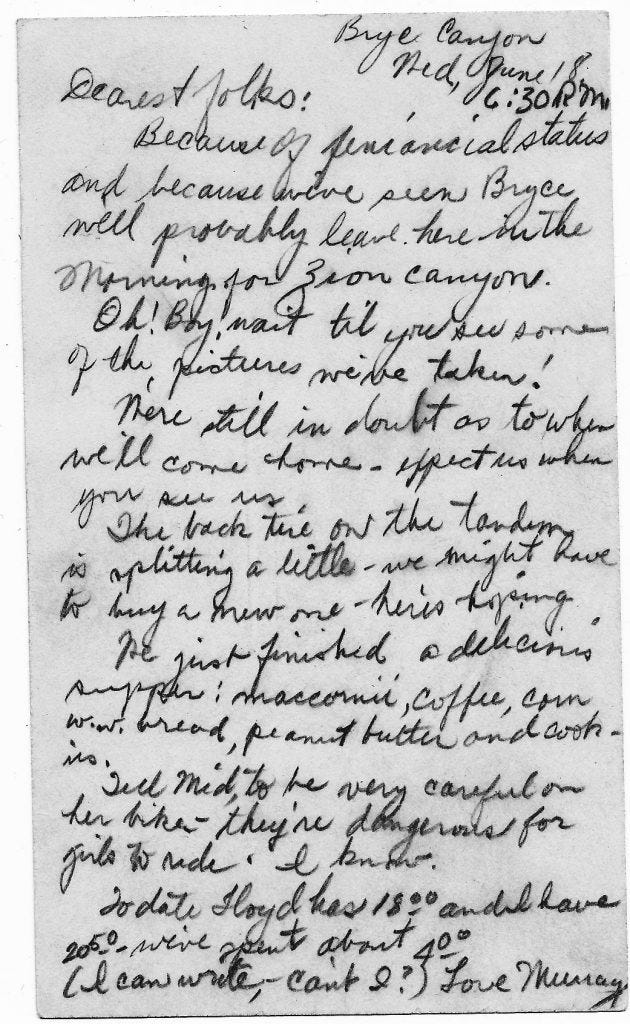 Bryce Canyon
Wed, June 18
6:30 P.M.
Dearest folks:
Because of financial status
and because we've seen Bryce
we'll probably leave here in the
morning for Zion Canyon.
Oh! Boy! wait til you see some
of the pictures we've taken!
We're still in doubt as to when
we'll come home - expect us when
you see us.
The back tire on the tandem
is splitting a little - we might have
to buy a new one - here's hoping
We just finished a delicious
supper: maccornii, coffee, corn
w.w. bread, peanut butter and cook-
ies.
Tell Mid, to be very careful on
her bike - they're dangerous for
girls to ride. I know.
To date Floyd has 18.00 and I have
20.50 - we've spent about 4.00
(I can write, - can't I?) Love Murray